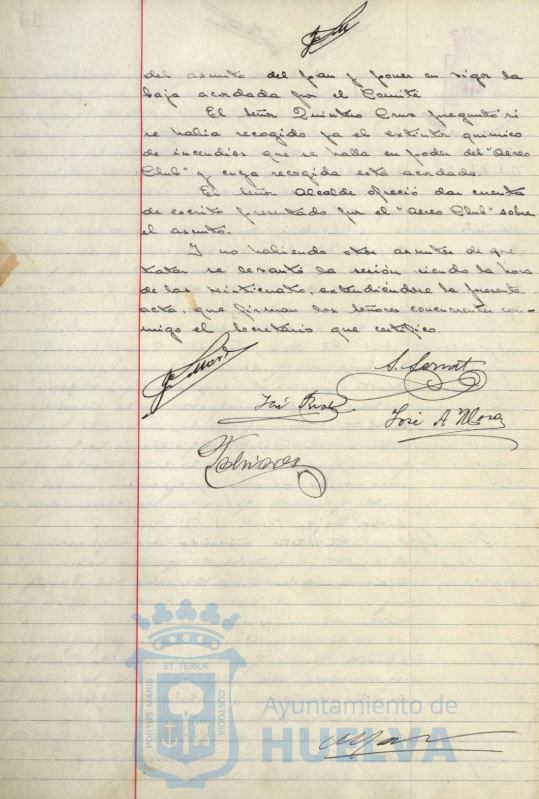 del asunto del pan y poner en vigor la
baja acordada por el Comité
El Señor Quintero Cruz preguntó si
se habia recogido ya el extintor quimico
de incendios que se halla en poder del "Aereo
Club" y cuya recogida está acordada.
El Señor Alcalde ofreció dar cuenta
de escrito presentado por el "Aereo Club" sobre
el asunto.
Y no habiendo otros asuntos de que
tratar se levantó la sesión siendo la hora
de las veinticuatro, extendiéndose la presente
acta, que firman los señores concurrentes con-
migo el Secretario que certifico.
S. Serrat
José
José A Mora
ET TERRÆ
PORTUS MARIS
CUSTODIA
Ayuntamiento de
HUELVA